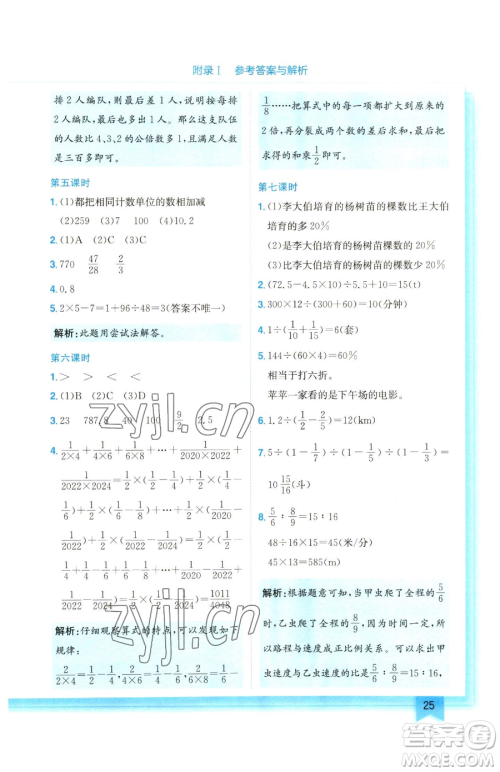 附录Ⅰ 参考答案与解析
排2人编队，则最后差1人；如果每
排2人编队，最后多出1人。所以总人
数比4、3、2的公倍数多1，满足人数
是三百多即可。
第五课时
1. (1)都把相同计数单位的数相加减
(2)259 (3)7 100 (4)0.3
2. (1)A (2)C (3)D
3. 770 47/28 2/3
4. 0.8
5. 2×5-7=1+96÷48=3(答案不唯一)
解析:此题用尝试法解答。
第六课时
1. > > < <
2. (1)B (2)C (3)D
3. 23 787.8 40 100 9/2 2.5
4. 1/(2×4)+1/(4×6)+1/(6×8)+…+1/(2020×2022)+
1/(2022×2024)=1/2×(1/2-1/4)+1/2×(1/4-
1/6)+1/2×(1/6-1/8)+…+1/2×(1/2020-
1/2022)+1/2×(1/2022-1/2024)=1/2×(1/2-
1/4+1/4-1/6+1/6-1/8+…+1/2020-1/2022+
1/2022-1/2024)=1/2×(1/2-1/2024)=1011/4048
解析:仔细观察算式的特点,可以发现如下
规律:
1/(2×4)=1/4-1/8, 1/(4×6)=1/8-1/12, 1/(6×8)=1/12-
1/16……把算式中的每一项都扩大到原来的
2倍,再分解成两个数的差的形式,最后再
乘1/2即可。
第七课时
1. (1)李大伯培育的杨树苗的棵数比王大伯
培育的杨树苗的棵数多20%
(2)是李大伯培育的杨树苗棵数的20%
(3)比李大伯培育的杨树苗的棵数少20%
2. (72.5-4.5×10)÷(2.5)
3. 300×12÷(300+60)=10(分钟)
4. 1÷(1/10+1/15)=6(套)
5. 
相当于打六折。
苹苹一家看的是下午场的电影。
6. 1.2÷(1/2-2/5)=12(km)
7. 5÷(1-1/7)÷(1-1/5)÷(1-1/3)=
10 15/16(斗)
8. 5/6∶8/9=15∶16
48÷16×15=45(米/分)
45×13=585(m)
解析:根据题意可知,当甲虫爬了全程的5/6
时,乙虫爬了全程的8/9,因为时间相同,所
以路程与速度成正比例关系。因此可求出甲
虫速度与乙虫速度的比是5/6∶8/9=15∶16。
25
zyjl.cn
zyjl.cn
答案圈
MXQE.COM